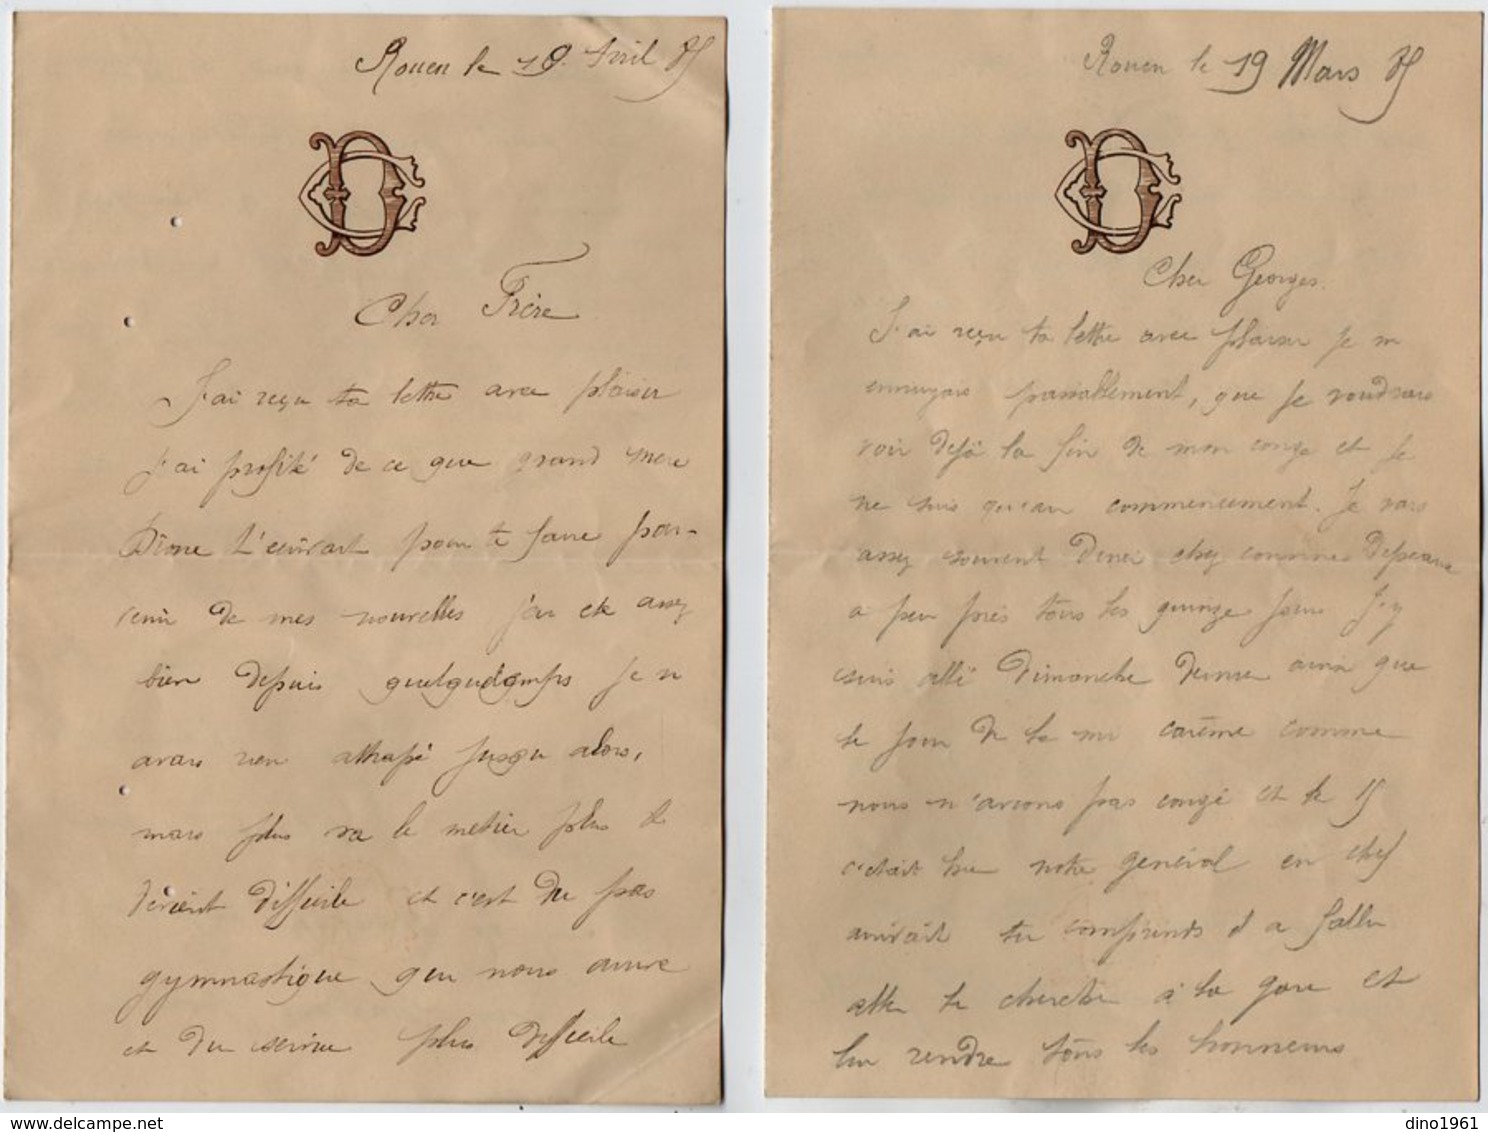 Rouen le 10 Avril 85
DC
Cher Frère
J'ai reçu ta lettre avec plaisir
j'ai profité de ce que grand mere
t'ecrivait pour te faire par-
venir de mes nouvelles j'ai ete assez
bien depuis quelquetemps je n
avais rien attrapé jusqu alors,
mais plus va le metier plus il
devient difficile et c'est du pas
gymnastique qeu nous avons
et du service plus difficile
Rouen le 19 Mars 85
DC
Cher Georges.
J'ai reçu ta lettre avec plaisir je m
ennuyais passablement, que je voudrais
voir dejà la fin de mon congé et je
ne suis qu'au commencement. Je vais
assez souvent diner chez cousine Depeaux
a peu près tous les quinze jours j'y
suis allé Dimanche dernier ainsi que
le jour de la mi carême comme
nous n'avions pas congé et le 15
c'etait hier notre general en chef
arrivait tu comprends il a fallu
aller le chercher à la gare et
lui rendre tous les honneurs
dino1961